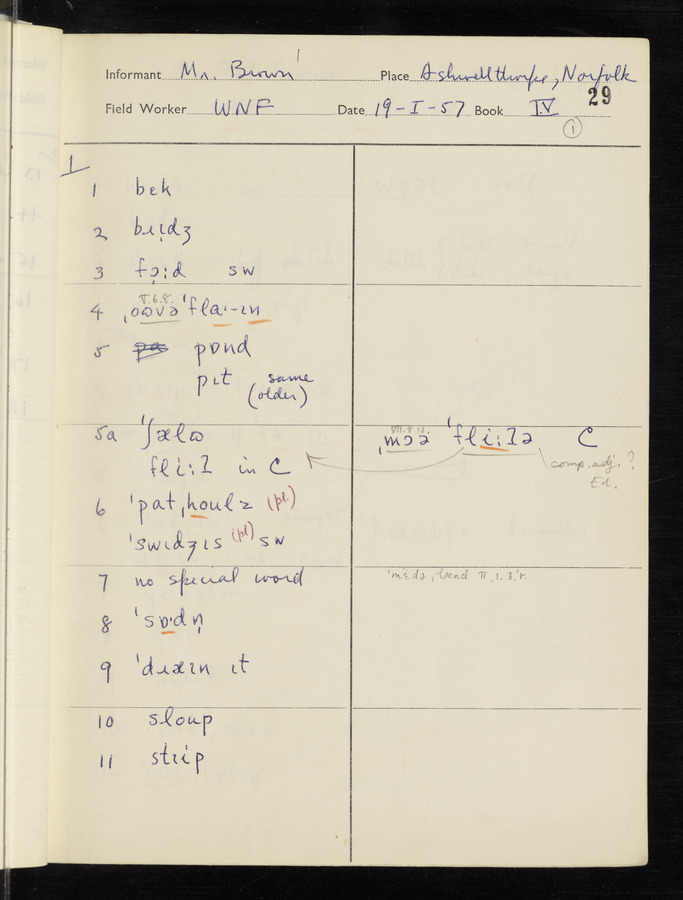 Informant Mr. Brown Place Ashwellthorpe, Norfolk
29
Field Worker WNF Date 19-I-57 Book IV
1
1
1 bɛk
2 bɹɪdʒ
3 fɔ̣ːd sw
V.6.8.
4 ˌoʊvə ˈflaˑ-ɪn
5 pɒnd
pɪt same
(older)
5a ˈʃælʊ ˌmɔə ˈfliːɪə C
VII.8.13.
fliːɪ in C comp. adj. ?
Ed.
6 ˈpatˌhoulz (pl.)
ˈswɪdʒɪs (pl) sw
7 no special word II.1.3.r.
8 ˈsɒˑdn̩
9 ˈdɹæɪn ɪt
10 sloup
11 strɪp